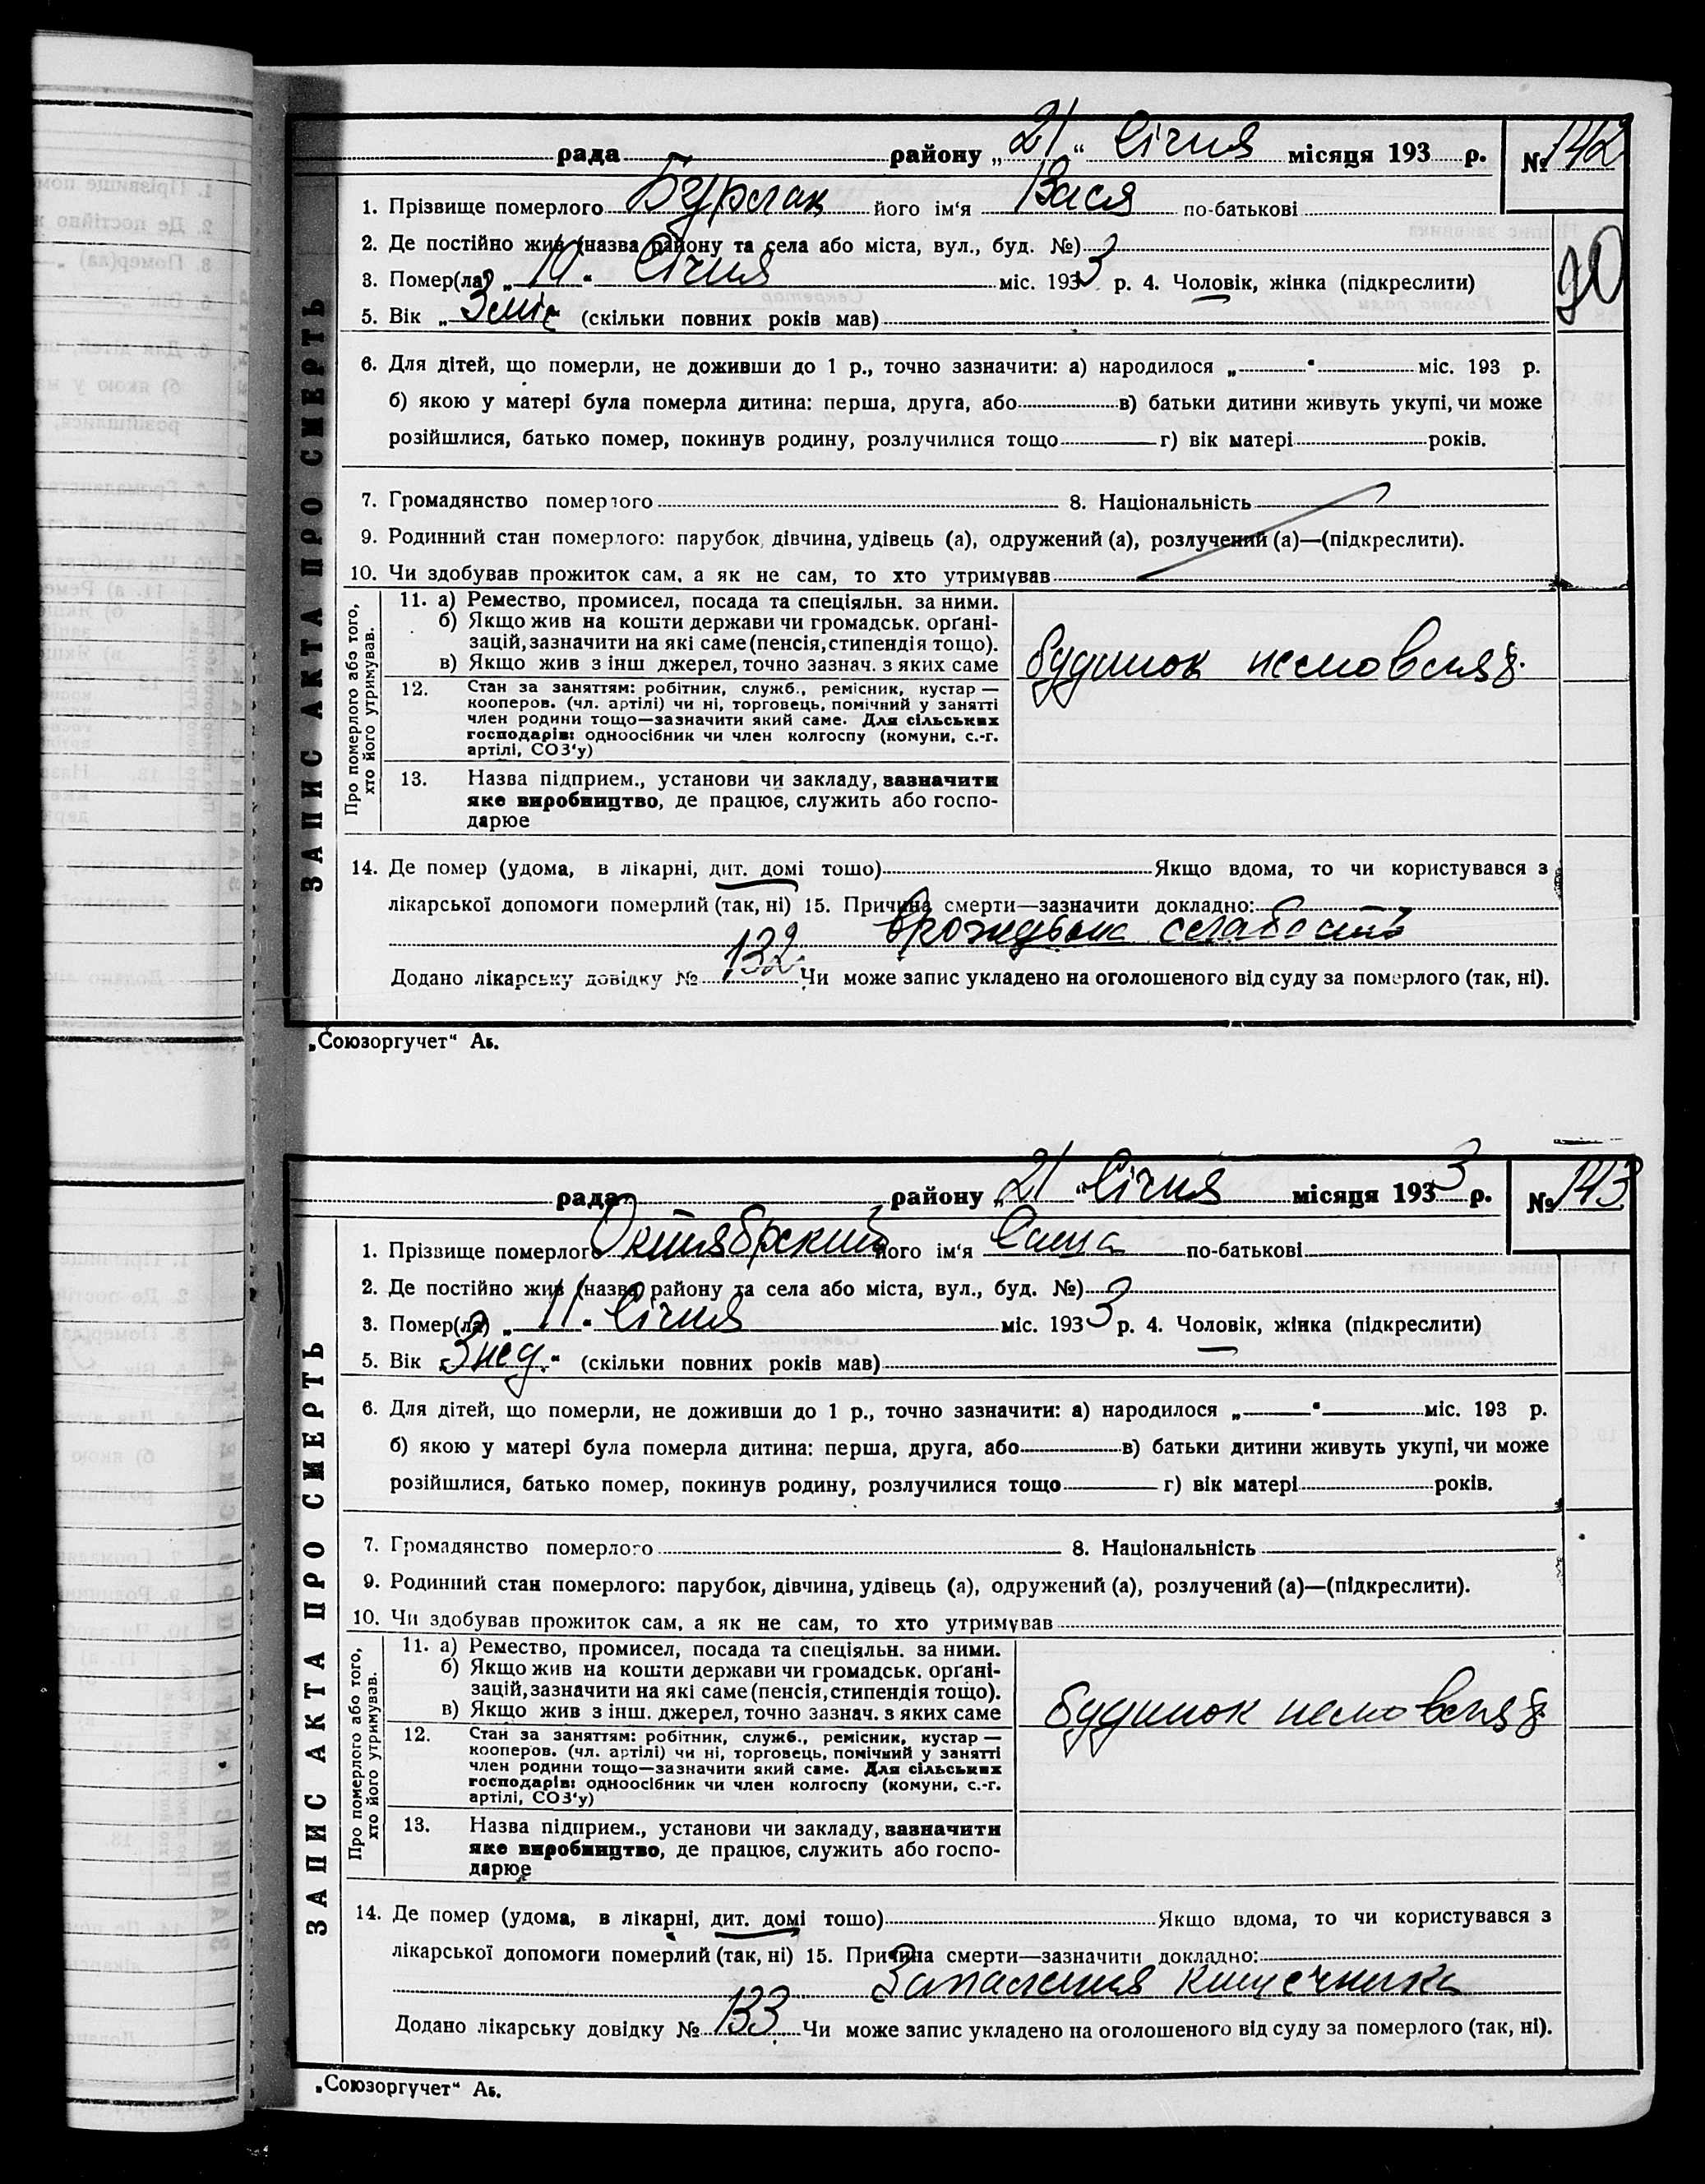 рада района „21“ Січня місяця 193 р. № 142
1. Прізвище померлого Бурлак його ім‘я Вася по-батькові
2. Де постійно жив (назва району та села або міста, вул., буд. №)
3. Помер(ла) „10“ Січня міс. 1933 р. 4. Чоловік, жінка (підкреслити)
90
5. Вік „3 міс“ (скільки повних років мав)
6. Для дітей, що померли, не доживши до 1 р., точно зазначити: а) народилося „ “ міс. 193 р.
б) якою у матері була померла дитина: перша, друга, або в) батьки дитини живуть укупі, чи може
розійшлися, батько помер, покинув родину, розлучилися тощо г) вік матері років.
7. Громадянство померлого 8. Національність
9. Родинний стан померлого: парубок, дівчина, удівець (а), одружений (а), розлучений (а)—(підкреслити).
10. Чи здобував прожиток сам, а як не сам, то хто утримував
ЗАПИС АКТА ПРО СМЕРТЬ
Про померлого або того,
хто його утримував.
11. а) Ремество, промисел, посада та спеціяльн. за ними.
б) Якщо жив на кошти держави чи громадськ. орґані-
зацій, зазначити на які саме (пенсія, стипендія тощо).
в) Якщо жив з інш джерел, точно зазнач. з яких саме
будинок немовляд.
12. Стан за заняттям: робітник, служб., ремісник, кустар —
кооперов. (чл. артілі) чи ні, торговець, помічний у занятті
член родини тощо—зазначити який саме. Для сільських
господарів: одноосібник чи член колгоспу (комуни, с.-г.
артілі, СОЗ‘у)
13. Назва підприєм., установи чи закладу, зазначити
яке виробництво, де працює, служить або госпо-
дарює
14. Де помер (удома, в лікарні, дит. домі тощо) Якщо вдома, то чи користувався з
лікарської допомоги померлий (так, ні) 15. Причина смерти—зазначити докладно:
слабость
Додано лікарську довідку № 132 Чи може запис укладено на оголошеного від суду за померлого (так, ні).
„Союзоргучет“ Аб.
рада району „21“ Січня місяця 1933 р. № 143
1. Прізвище померлого Октябрский його ім‘я Саша по-батькові
2. Де постійно жив (назва району та села або міста, вул., буд. №)
3. Помер(ла) „11“ Січня міс. 1933 р. 4. Чоловік, жінка (підкреслити)
5. Вік „3 нед.“ (скільки повних років мав)
6. Для дітей, що померли, не доживши до 1 р., точно зазначити: а) народилося „ “ міс. 193 р.
б) якою у матері була померла дитина: перша, друга, або в) батьки дитини живуть укупі, чи може
розійшлися, батько помер, покинув родину, розлучилися тощо г) вік матері років.
7. Громадянство померлого 8. Національність
9. Родинний стан померлого: парубок, дівчина, удівець (а), одружений (а), розлучений (а)—(підкреслити).
10. Чи здобував прожиток сам, а як не сам, то хто утримував
ЗАПИС АКТА ПРО СМЕРТЬ
Про померлого або того,
хто його утримував.
11. а) Ремество, промисел, посада та спеціяльн. за ними.
б) Якщо жив на кошти держави чи громадськ. орґані-
зацій, зазначити на які саме (пенсія, стипендія тощо).
в) Якщо жив з інш. джерел, точно зазнач. з яких саме
будинок немовляд.
12. Стан за заняттям: робітник, служб., ремісник, кустар —
кооперов. (чл. артілі) чи ні, торговець, помічний у занятті
член родини тощо—зазначити який саме. Для сільських
господарів: одноосібник чи член колгоспу (комуни, с.-г.
артілі, СОЗ‘у)
13. Назва підприєм., установи чи закладу, зазначити
яке виробництво, де працює, служить або госпо-
дарює
14. Де помер (удома, в лікарні, дит. домі тощо) Якщо вдома, то чи користувався з
лікарської допомоги померлий (так, ні) 15. Причина смерти—зазначити докладно:
Запалення кишечника
Додано лікарську довідку № 133 Чи може запис укладено на оголошеного від суду за померлого (так, ні).
„Союзоргучет“ Аб.